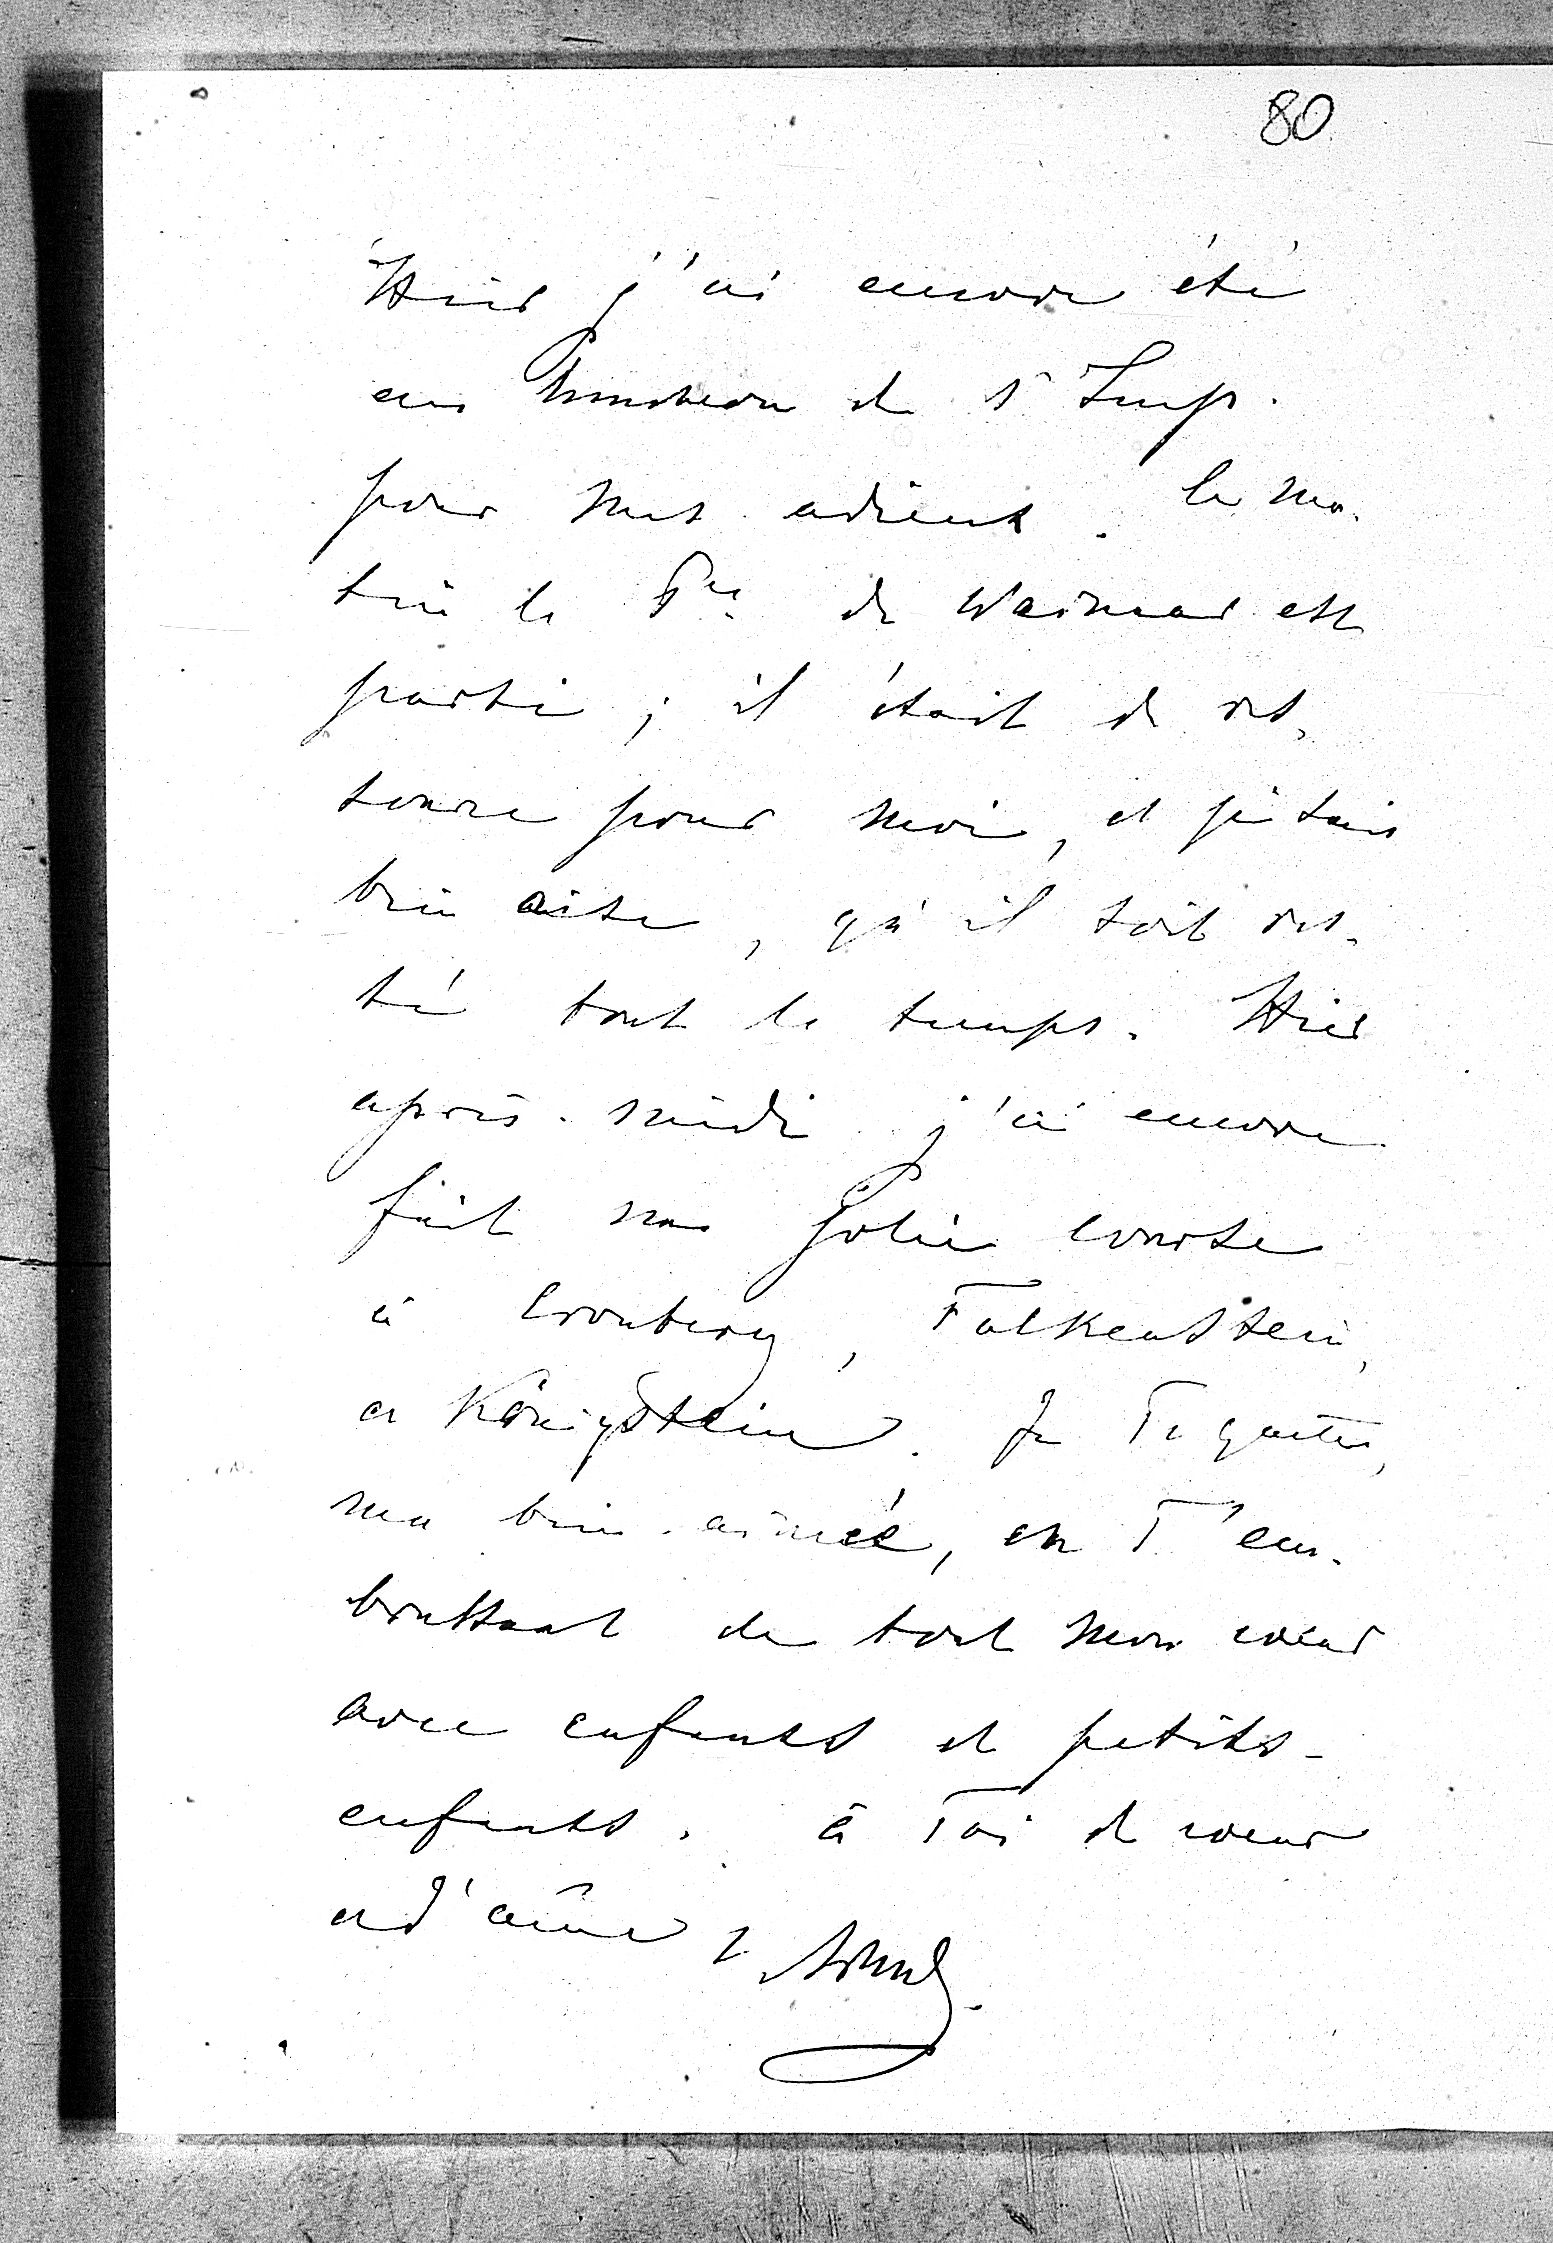 80
Hier j'ai encore été
au luncheon de l'Imp.
pour mes adieux. Ce ma-
tin le Pce de Weimar est
parti; il était de res-
source pour moi, et j'étais
bien aise, qu'il soit res-
té tout le temps. Hier
après-midi j'ai encore
fait une jolie course
à Cronberg, Falkenstein,
et Königstein. Je Te quitte,
ma bien-aimée, en T'em-
brassant de tout mon cœur
avec enfants et petits-
enfants. à Toi de cœur
et d'âme